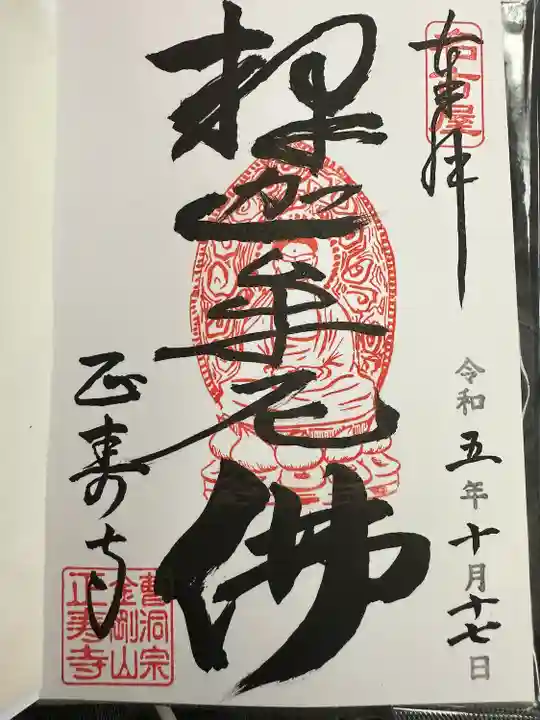 奉拝
名古屋
令和五年十月十七日
釋迦牟尼佛
正壽寺
曹洞宗
金剛山
正寿寺